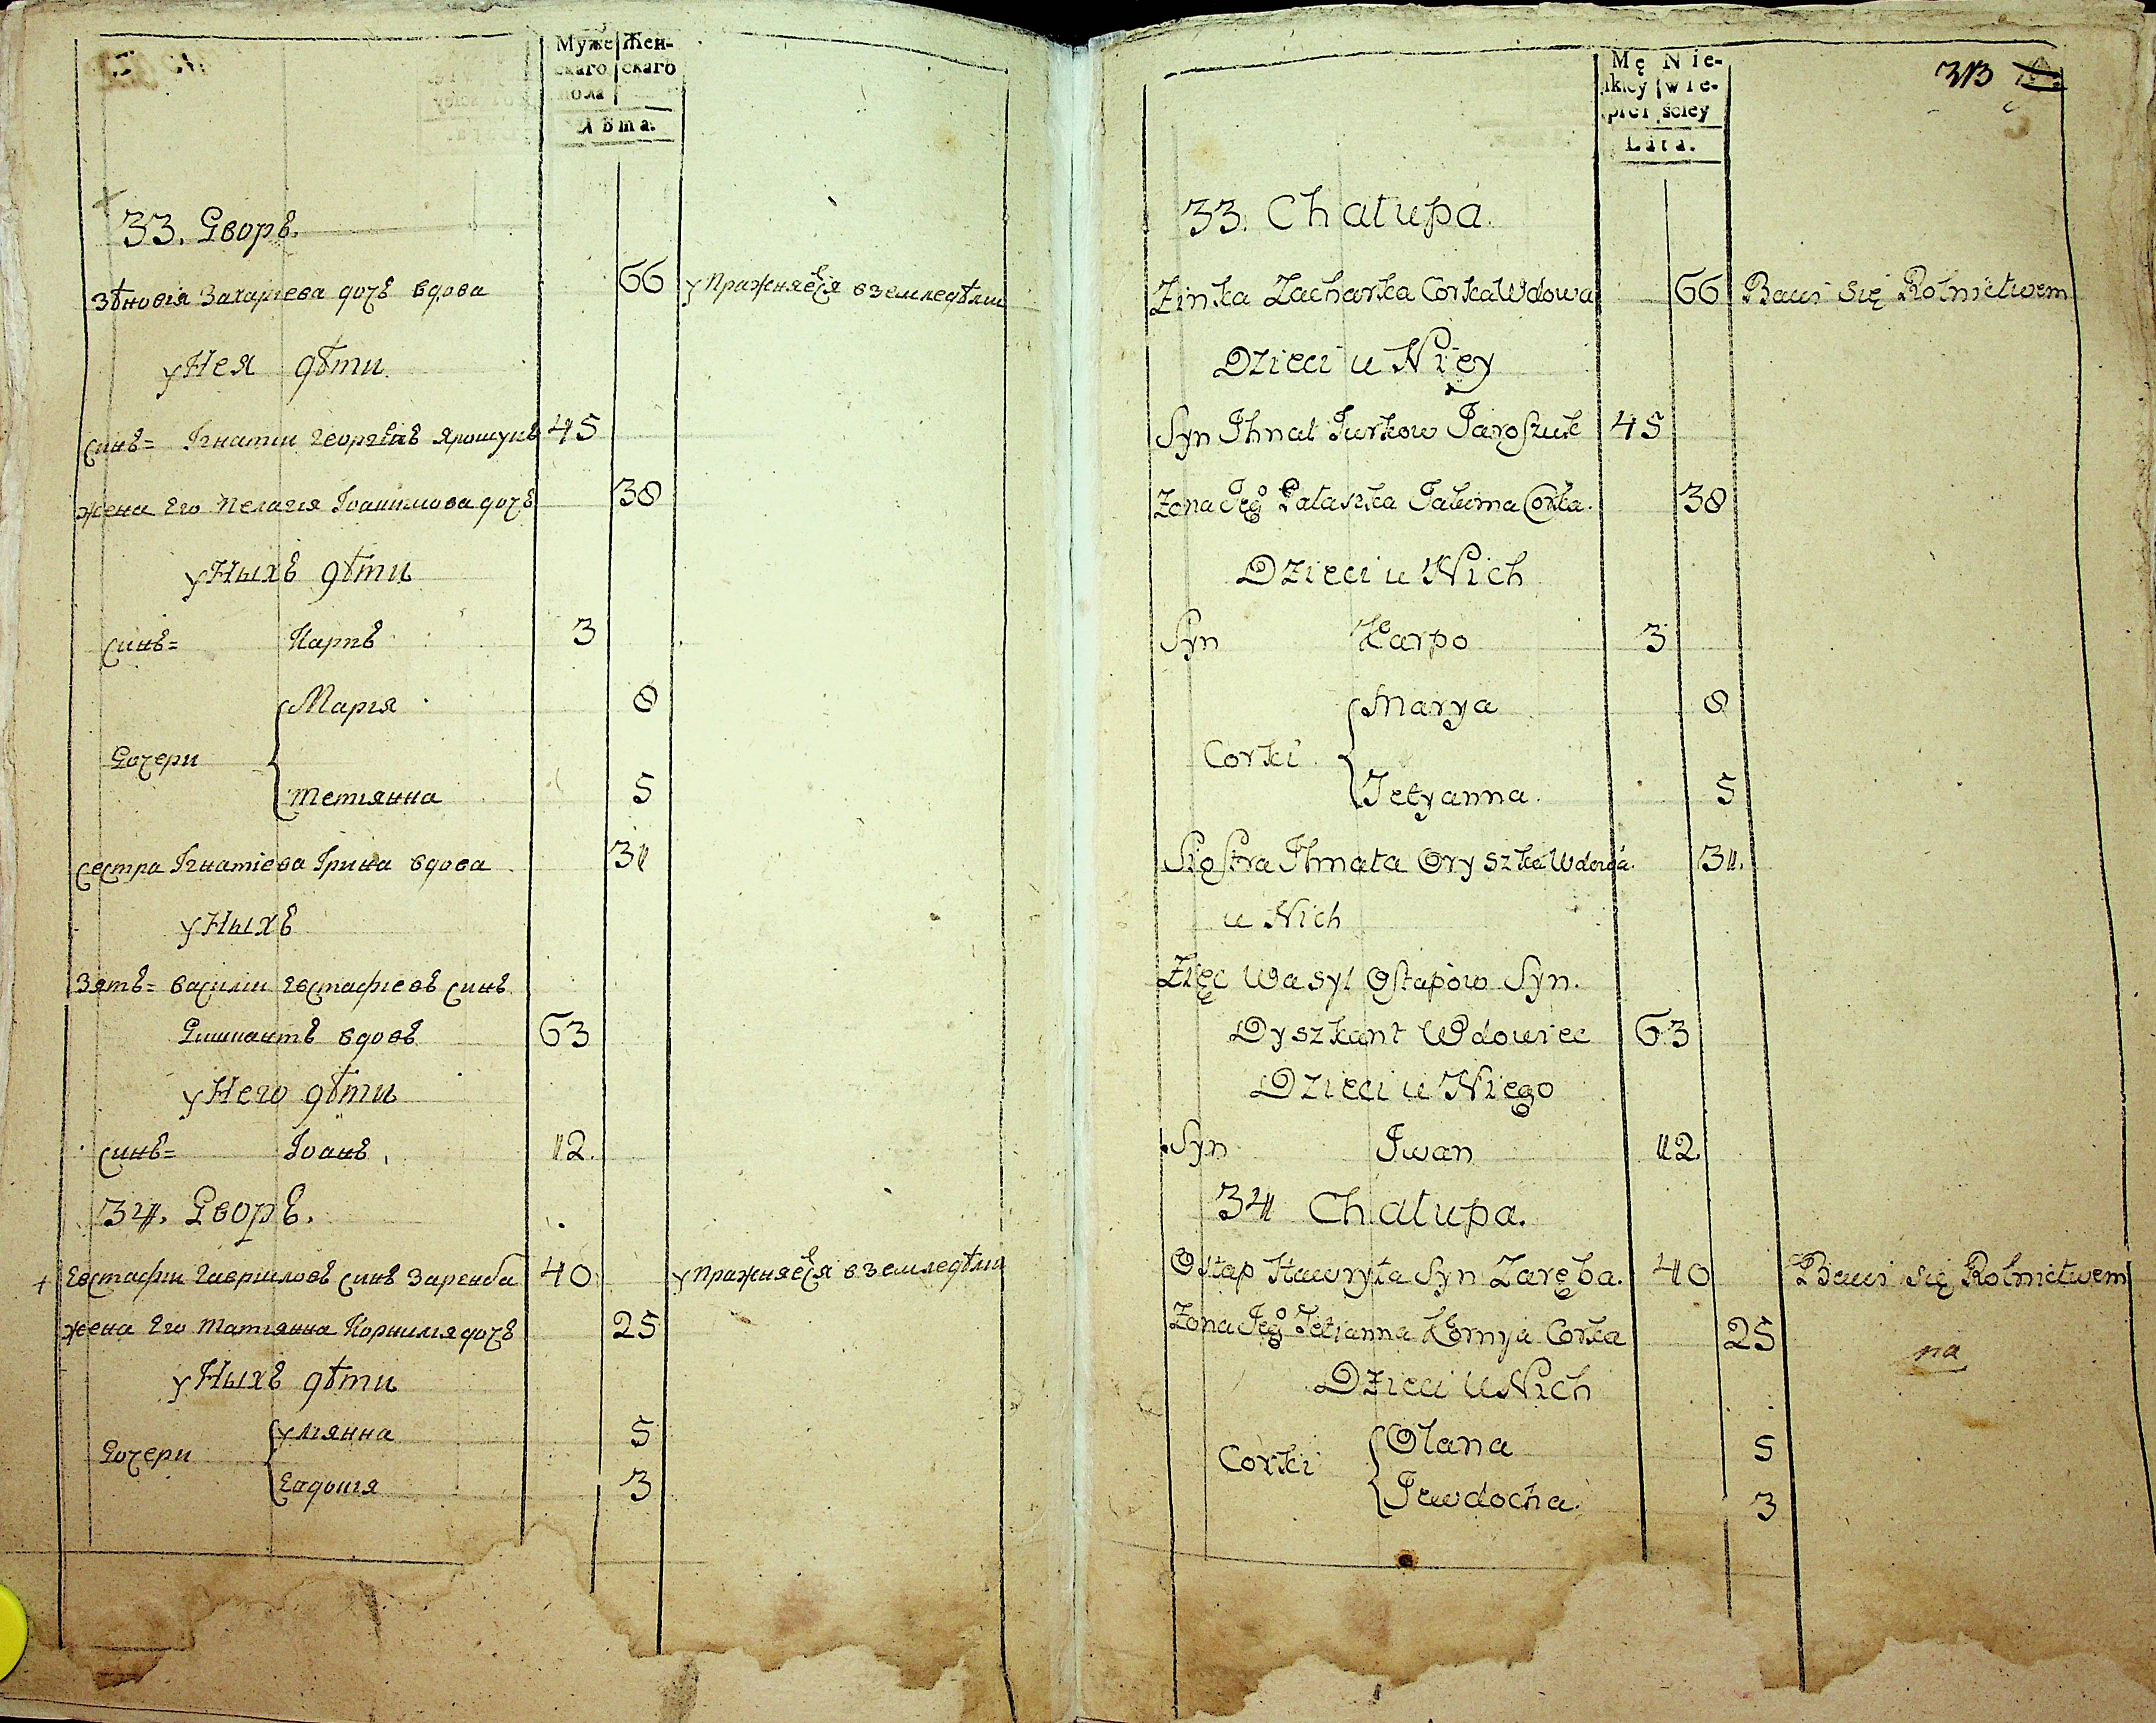 Муже Жен-
скаго скаго
пола
Лѣта.
33. Дворъ.
Зѣновiя Захарiева дочъ вдова 66 упражняеся вземледѣлии
уНея дѣти
Синъ= Iгнатии Георгiевъ Ярошукъ 45
жена Его Пелагiя Iоакимова дочъ 38
уНыхъ дѣти
Синъ= Карпъ 3
Марiя 8
Дочери
Тетiянна 5
Сестра Iгнатiева Iрина вдова 31
уНыхъ
Зятъ= Василии Евстафiевъ Синъ
Дишкантъ вдовъ 63
уНего дѣти
Синъ= Iоанъ 12.
34. Дворъ.
Евстафии Гавриловъ Синъ Заренба 40 упражняеся вземледѣлии
жена Его Татiянна Корнилiя дочъ 25
уНыхъ дѣти
Улiянна 5
Дочери
Евдокiя 3
Mę Nie-
skiey wie-
płci ściey
Lata.
313
33. Chałupa.
Zinka Zacharka Corka Wdowa 66 Bawi się Rolnictwem
Dzieci u Niey
Syn Ihnat Jurkow Jaroszuk 45
Zona Jego Pałaszka Jakima Corka. 38
Dzieci u Nich
Syn Karpo 3
Marya 8
Corki
Tetyanna. 5
Siostra Ihnata Oryszka Wdowa. 31.
u Nich
Zięc Wasyl Ostapow Syn.
Dyszkant Wdowiec 63
Dzieci u Niego
Syn Iwan 12.
34 Chałupa.
Ostap Hawryła Syn Zaręba. 40 Bawi się Rolnictwem
Zona Jego Tetianna Kornya Corka 25
na
Dzieci u Nich
Olana 5
Corki
Jewdocha. 3